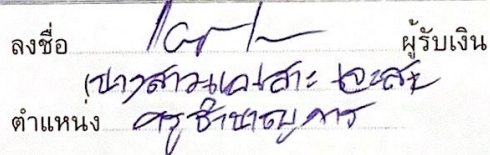 ลงชื่อ ผู้รับเงิน
(นางสาว
ตำแหน่ง ครูชำนาญการ